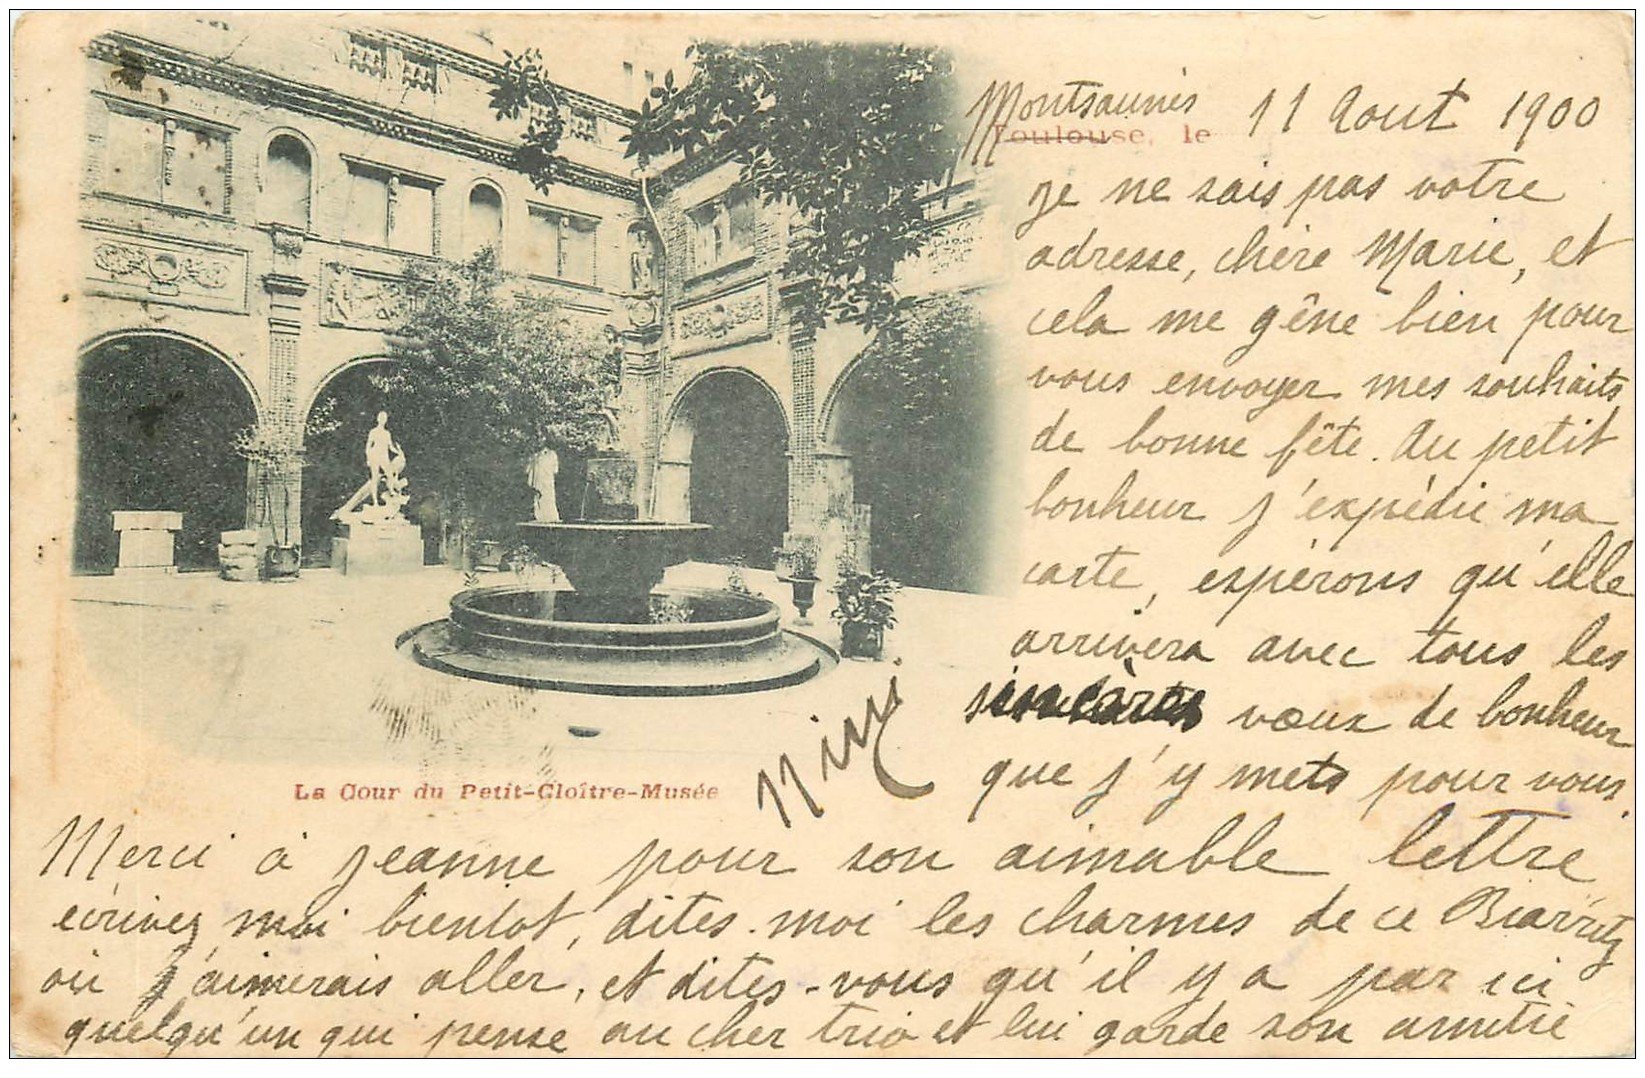 Montsaunès 11 Aout 1900
Toulouse, le
Je ne sais pas votre
adresse, chère Marie, et
cela me gêne bien pour
vous envoyer mes souhaits
de bonne fête. Au petit
bonheur j'expédie ma
carte, espérons qu'elle
arrivera avec tous les
sincères vœux de bonheur
que j'y mets pour vous.
La Cour du Petit-Cloître-Musée
Merci à Jeanne pour son aimable lettre
écrivez moi bientot, dites-moi les charmes de ce Biarritz
où j'aimerais aller, et dites-vous qu'il y a par ici
quelqu'un qui pense au cher trio et lui garde son amitié